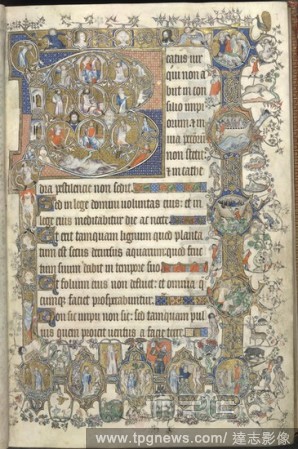 B
eatus vir
qui non a
bit in con
silio impi
orum: et in
via
non stetit:
et in cathe
dra pestilencie non sedit.
Sed in lege domini voluntas eius: et in
lege eius meditabitur die ac nocte.
Et erit tamquam lignum quod planta
tum est secus decursus aquarum: quod fruc
tum suum dabit in tempore suo
Et folium eius non defluet: et omnia q
cumq faciet prosperabuntur.
Non sic impii non sic: sed tamquam pul
vis quem proicit ventus a facie terre.
www.tpgnews.com/達志影像